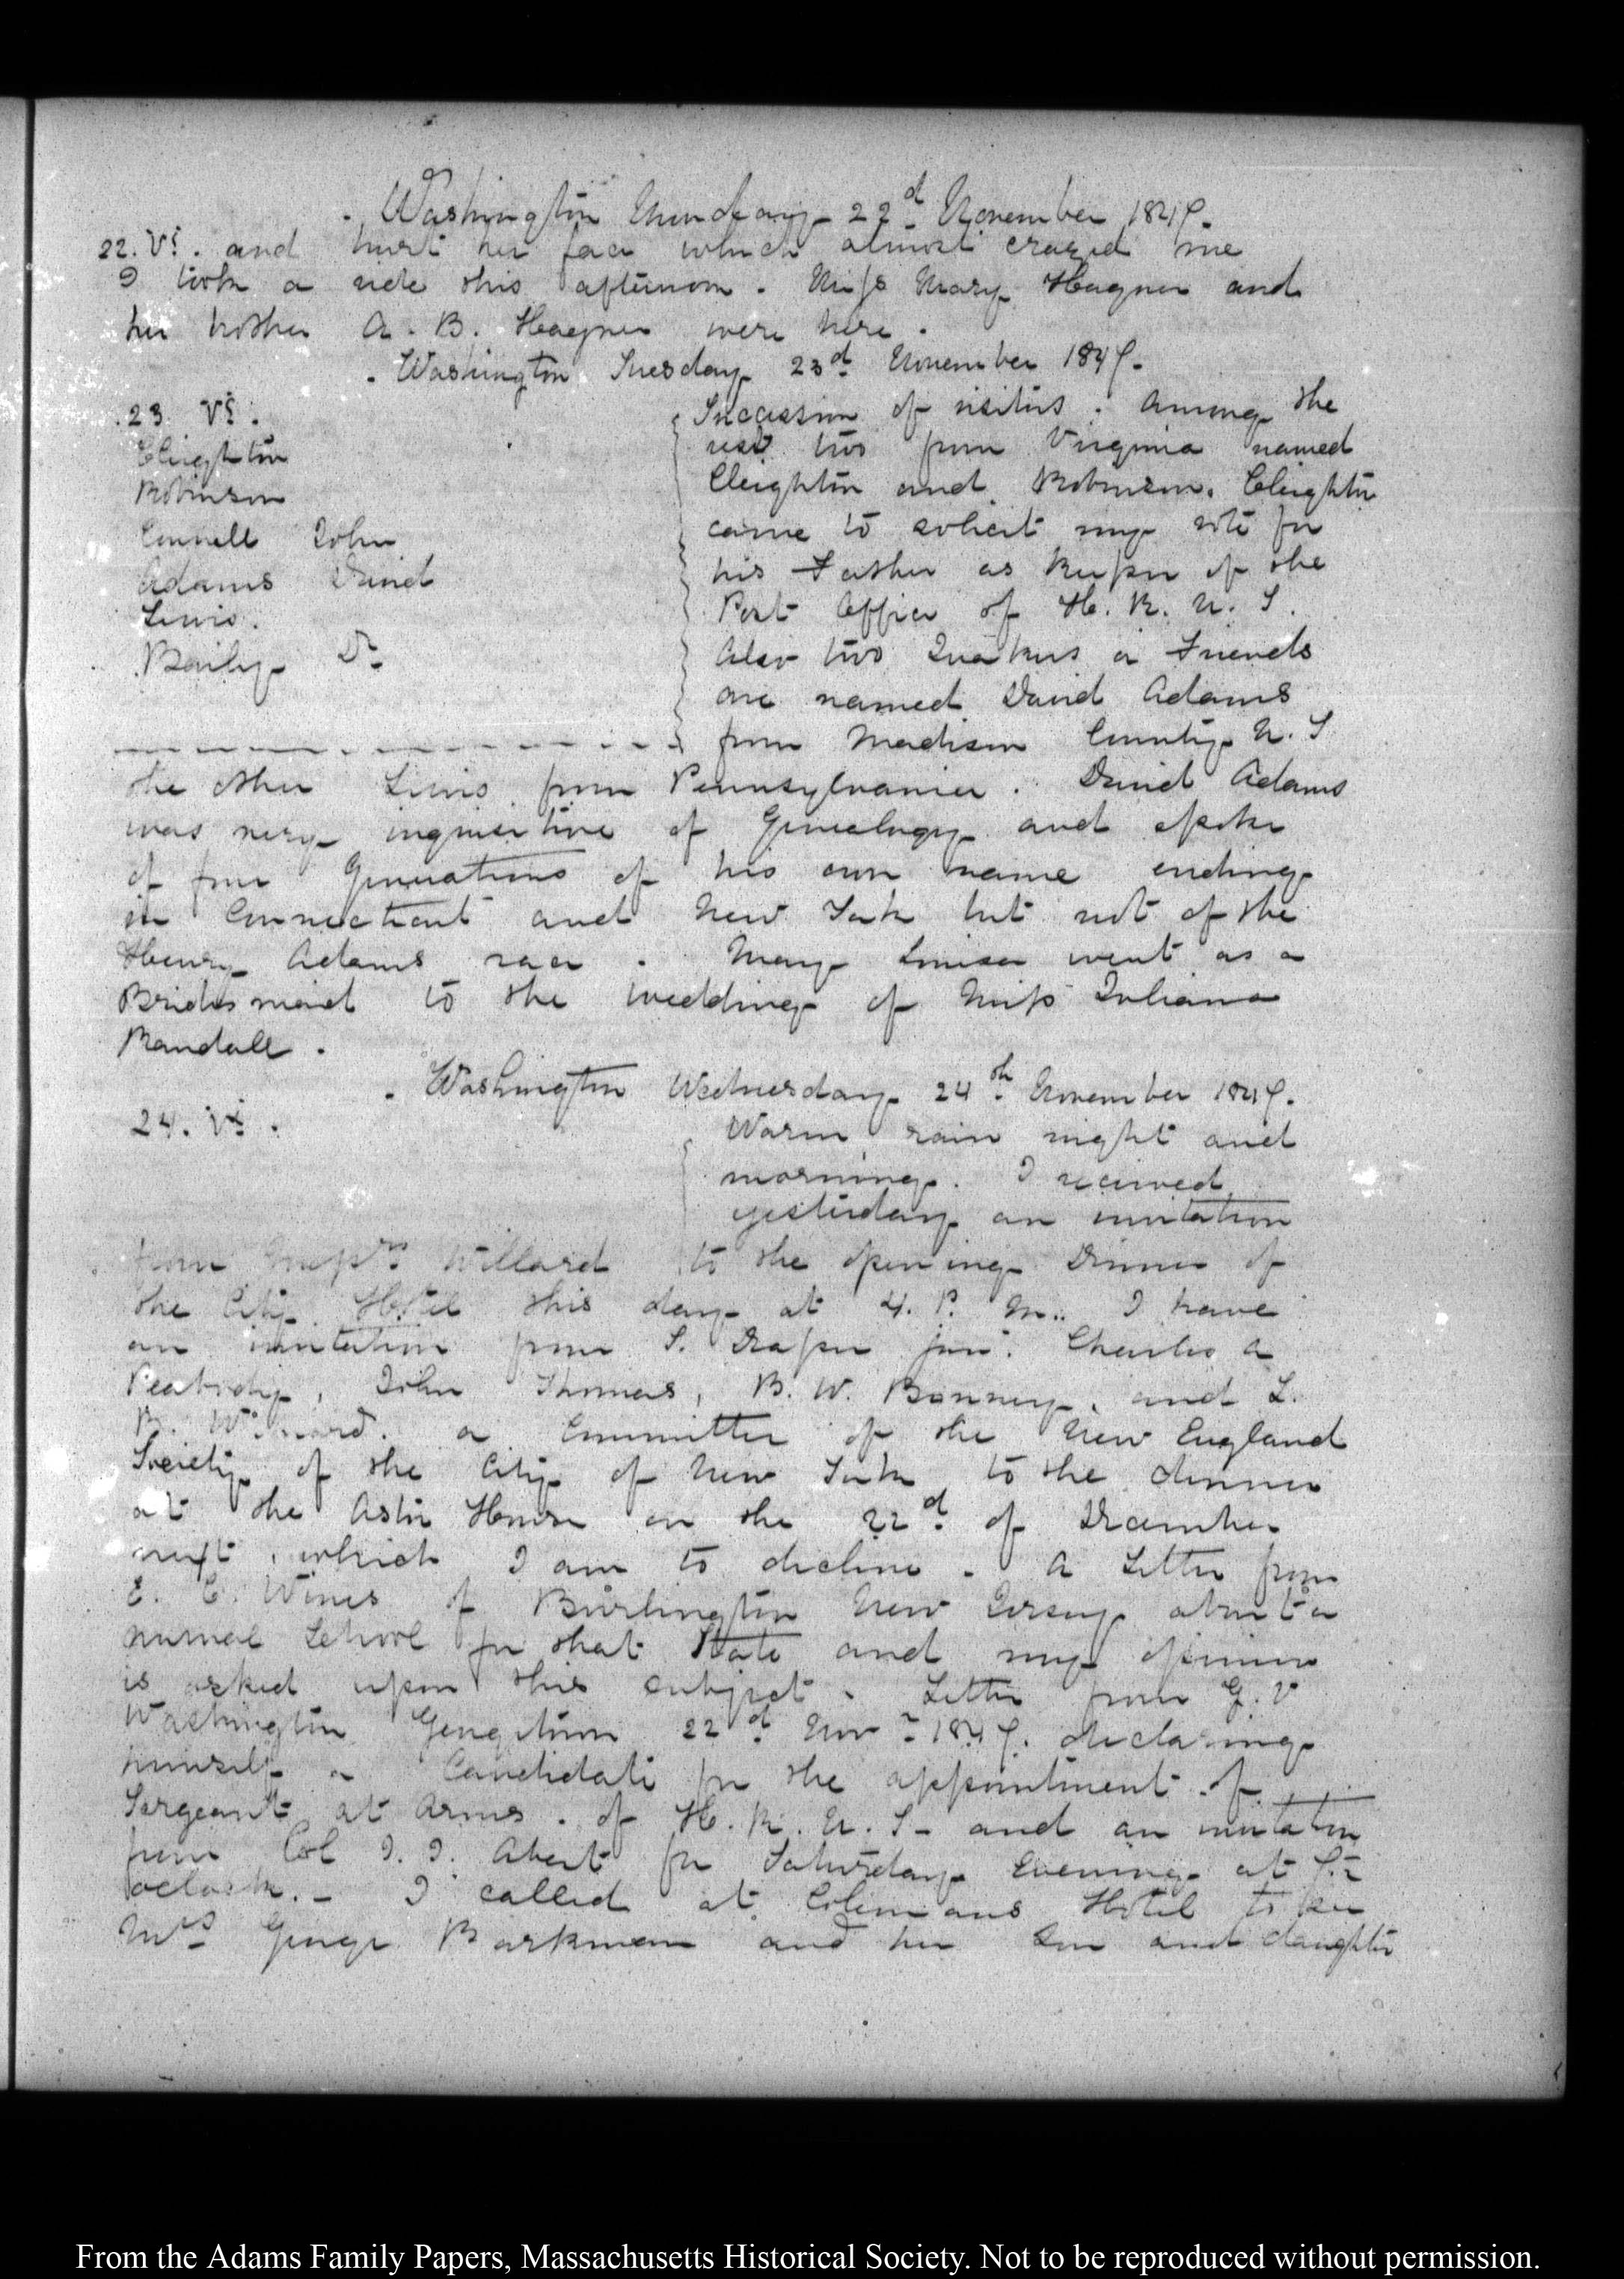 Washington Munday 22d November 1847.
22. V: and hurt her face which almost crazed me
I took a ride this afternoon. Miss Mary Hagner and
her brother A. B. Hagner were here.
Washington Tuesday 23d November 1847.
23. V:
Cleighton
Robinson
Connell John
Adams David
Lewis.
Baily Dr
Succession of visitors. Among the
rest two from Virginia named
Cleighton and Robinson. Cleighton
came to solicit my vote for
his Father as keeper of the
Post Office of H. R. U. S.
Also two Quakers or Friends
one named David Adams
from Madison County N. Y
the other Lewis from Pennsylvania. David Adams
was very inquisitive of Genealogy and spoke
of four Generations of his own name ending
in Connecticut and New York but not of the
Henry Adams race. Mary Louisa went as a
Bridesmaid to the wedding of Miss Juliana
Randall.
Washington Wednesday 24th November 1847.
24. VI:
Warm rain night and
morning. I received
yesterday an invitation
from Messrs Willard to the opening Dinner of
the City Hotel this day at 4. P. M. I have
an invitation from S. Draper junr. Charles A
Peabody, John Thomas, B. W. Bonney, and L.
B. a Committee of the New England
Society of the City of New York to the dinner
at the Astor House on the 22d of December
next, which I am to decline. A Letter from
E. C. Wines of Burlington New Jersey about a
normal School for that State and my opinion
is asked upon this subject. Letter from G. V
Washington Georgetown 22d Novr 1847. declaring
himself a Candidate for the appointment of
Sergeant at Arms. of H. R. U. S- and an invitation
from Col J. J. Abert for Saturday Evening at 7.
oclock.- I called at Colemans Hotel to see
Mrs George Barkman and her Son and daughter
From the Adams Family Papers, Massachusetts Historical Society. Not to be reproduced without permission.